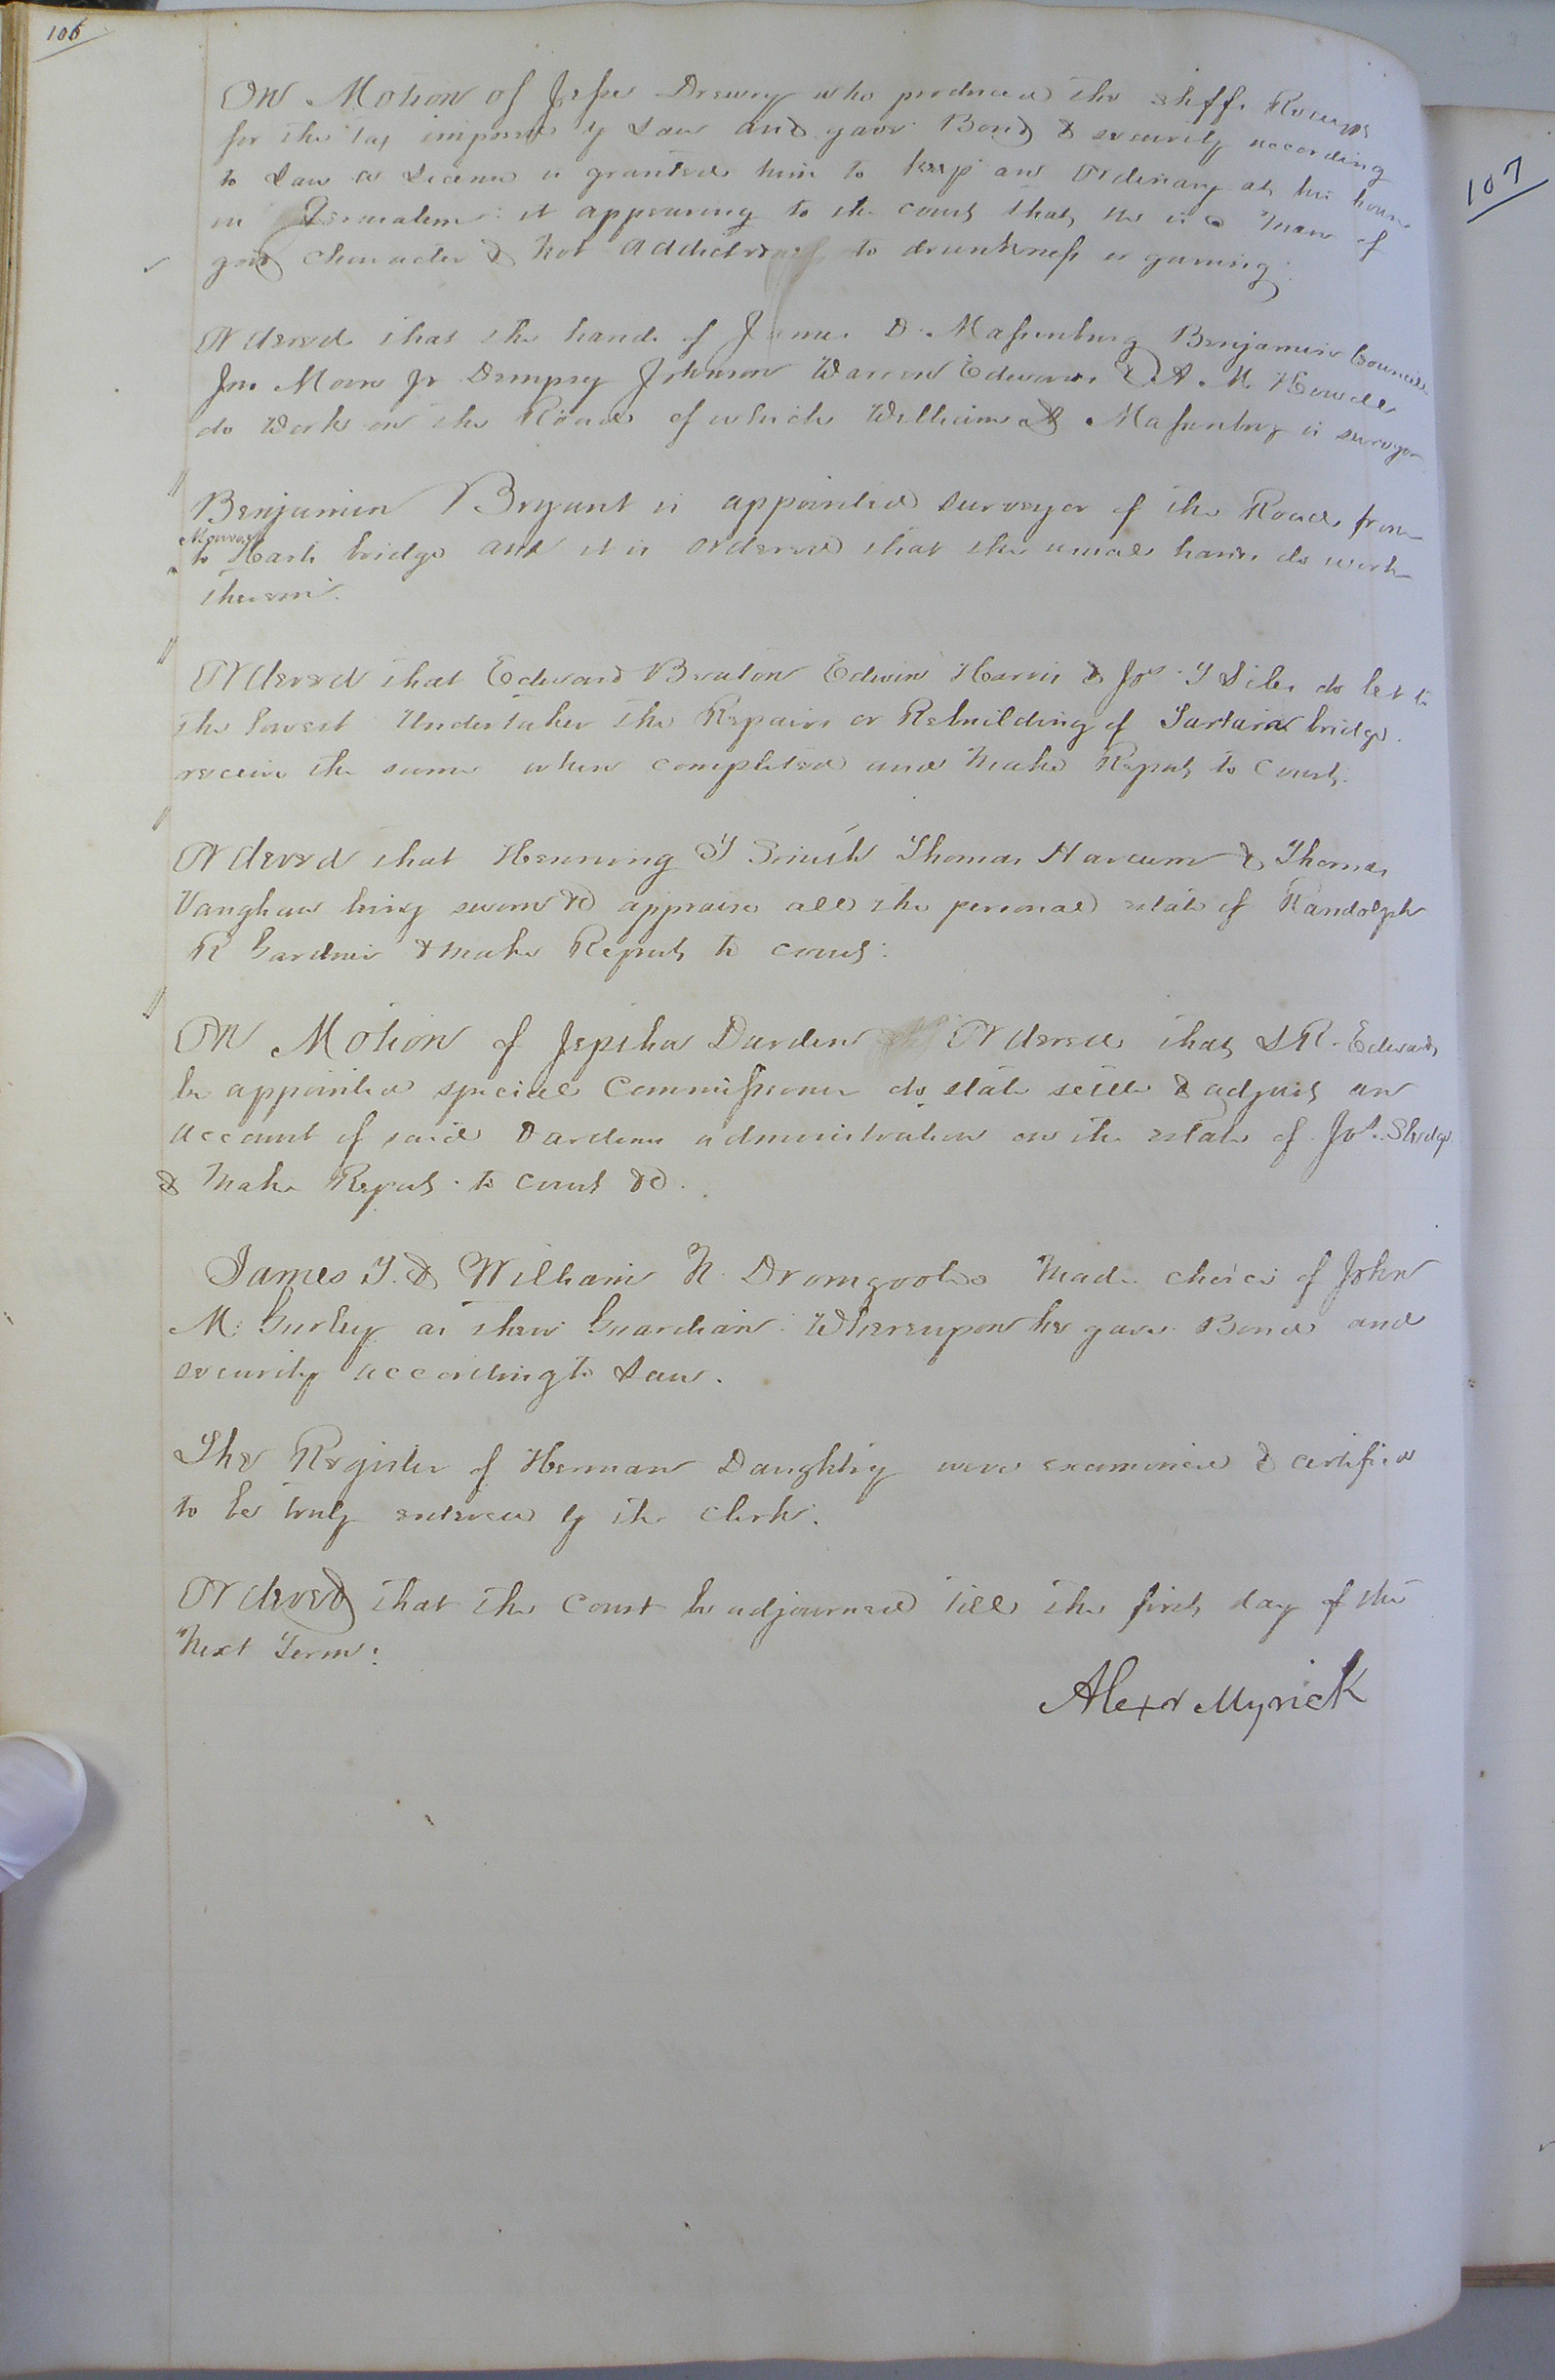 106
On Motion of Jesse Drewry who produced the shffs Receipt
for the tax imposed by Law and gave Bond & security according
to Law a License is granted him to keep an Ordinary at his house
in Jerusalem: it appearing to the court that he is a man of
good character & not addicted to drunkness or gaming.
Ordered that the hands of James D. Massenburg Benjamin Councill
Jno. Moore Jr Dempsey Johnson Warren Edwards & A. M. Howell
do work on the Road of which William A Massenburg is surveyor
Benjamin Bryant is appointed surveyor of the Road from
to bridge and it is ordered that the usual hands do work
thereon.
Ordered that Edward Beaton Edwin Harris & Jos. T Liles do let to
the lowest Undertaker the Repairs or Rebuilding of Tarrara bridge.
receive the same when completed and make Report to Court.
Ordered that Henning T Smith Thomas Harcum & Thomas
Vaughan being sworn &c appraise all the personal estate of Randolph
R Gardner & make Report to court:
On Motion of Jeptha Darden Ordered that L R. Edwards
be appointed special Commissioner do state settle & adjust an
account of said Dardens administration on the estate of Jos. Sledge
& make Report to court &c.
James T. & William N. Dromgoole made choice of John
M. Gurley as their Guardian. Whereupon he gave Bond and
security according to Law.
The Register of Herman Daughtry were examined & certified
to be truly entered by the clerk.
Ordered that the Court be adjourned till the first day of the
next Term:
Alexr Myrick
107